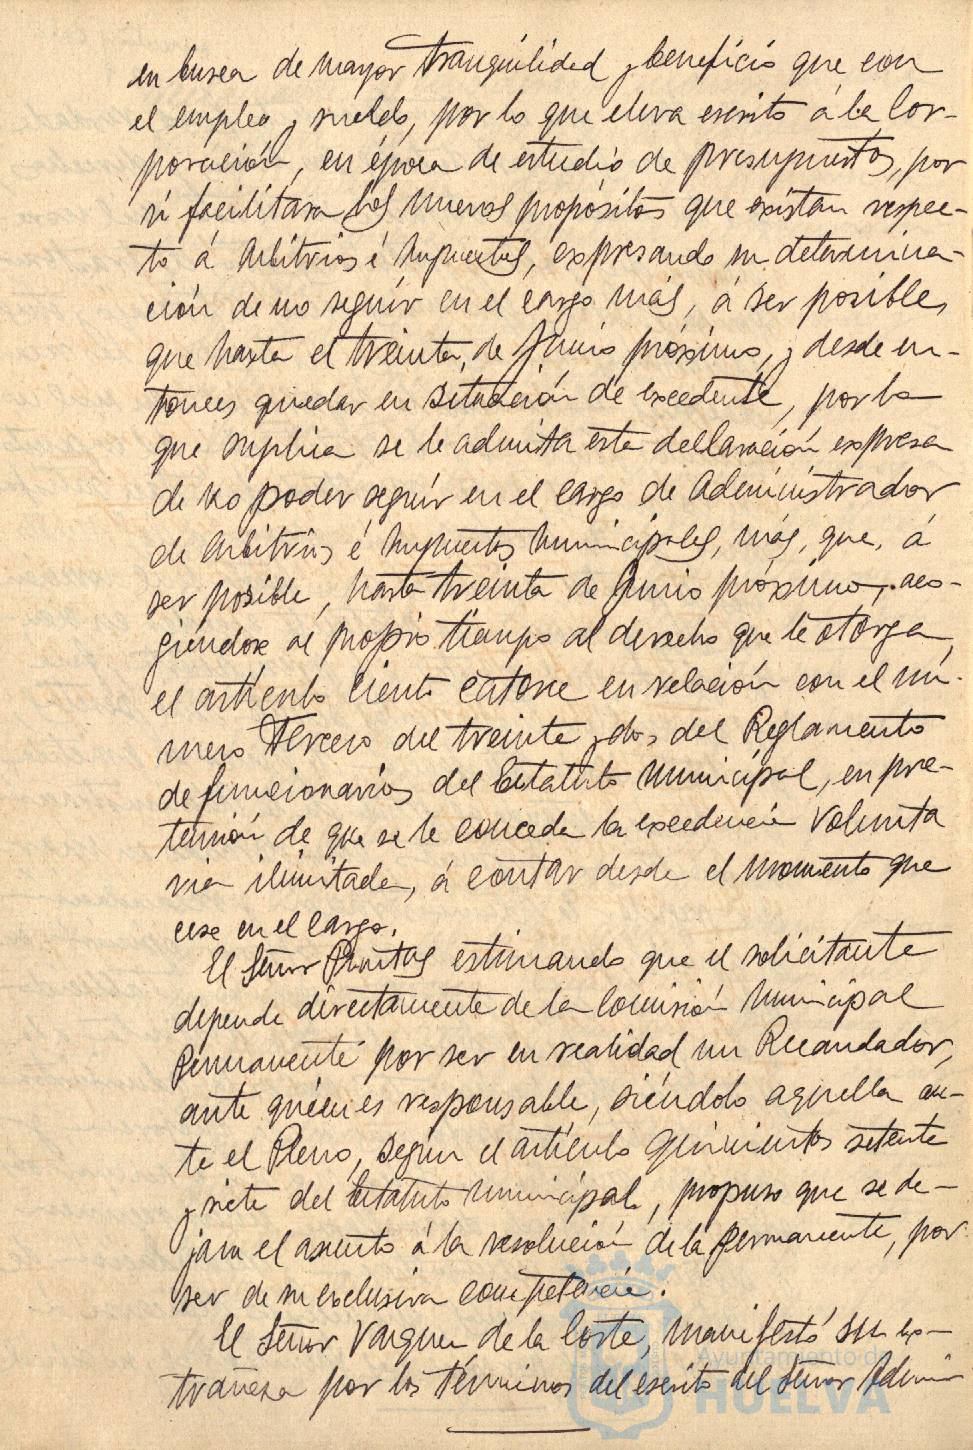 en busca de mayor tranquilidad y beneficio que con
el empleo y sueldo, por lo que eleva escrito á la Cor-
poración, en época de estudio de presupuestos, por
si facilitara los nuevos propósitos que existan respec-
to á Arbitrios é Impuestos, expresando su determina-
ción de no seguir en el cargo más, á ser posible,
que hasta el treinta de Junio próximo, y desde en-
tonces quedar en situación de excedente, por lo
que suplica se le admita esta declaración expresa
de no poder seguir en el cargo de Administrador
de Arbitrios é Impuestos Municipales, más, que, á
ser posible, hasta treinta de Junio próximo, aco-
giendose al propio tiempo al derecho que le otorga
el artículo ciento catorce en relación con el nú-
mero tercero del treinta y dos del Reglamento
de funcionarios del Estatuto Municipal, en pre-
tensión de que se le conceda la excedencia volunta
ria ilimitada, á contar desde el momento que
cese en el cargo.
El Señor Pontas estimando que el solicitante
depende directamente de la Comisión Municipal
Permanente por ser en realidad un Recaudador,
ante quién es responsable, siéndolo aquella an-
te el Pleno, según el artículo quinientos setenta
y siete del Estatuto Municipal, propuso que se de-
jara el asunto á la resolución de la Permanente, por
ser de su exclusiva competencia.
El Señor Vazquez de la Corte, manifestó su ex-
trañeza por los términos del escrito del Señor Admin
Ayuntamiento de
HUELVA